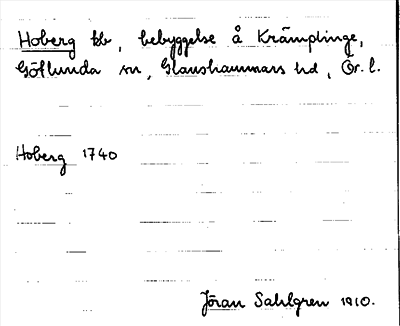 Hoberg kb, bebyggelse å Krämplinge,
Götlunda sn, Glanshammars hd, Ör. l.
Hoberg 1740
Jöran Sahlgren 1910.